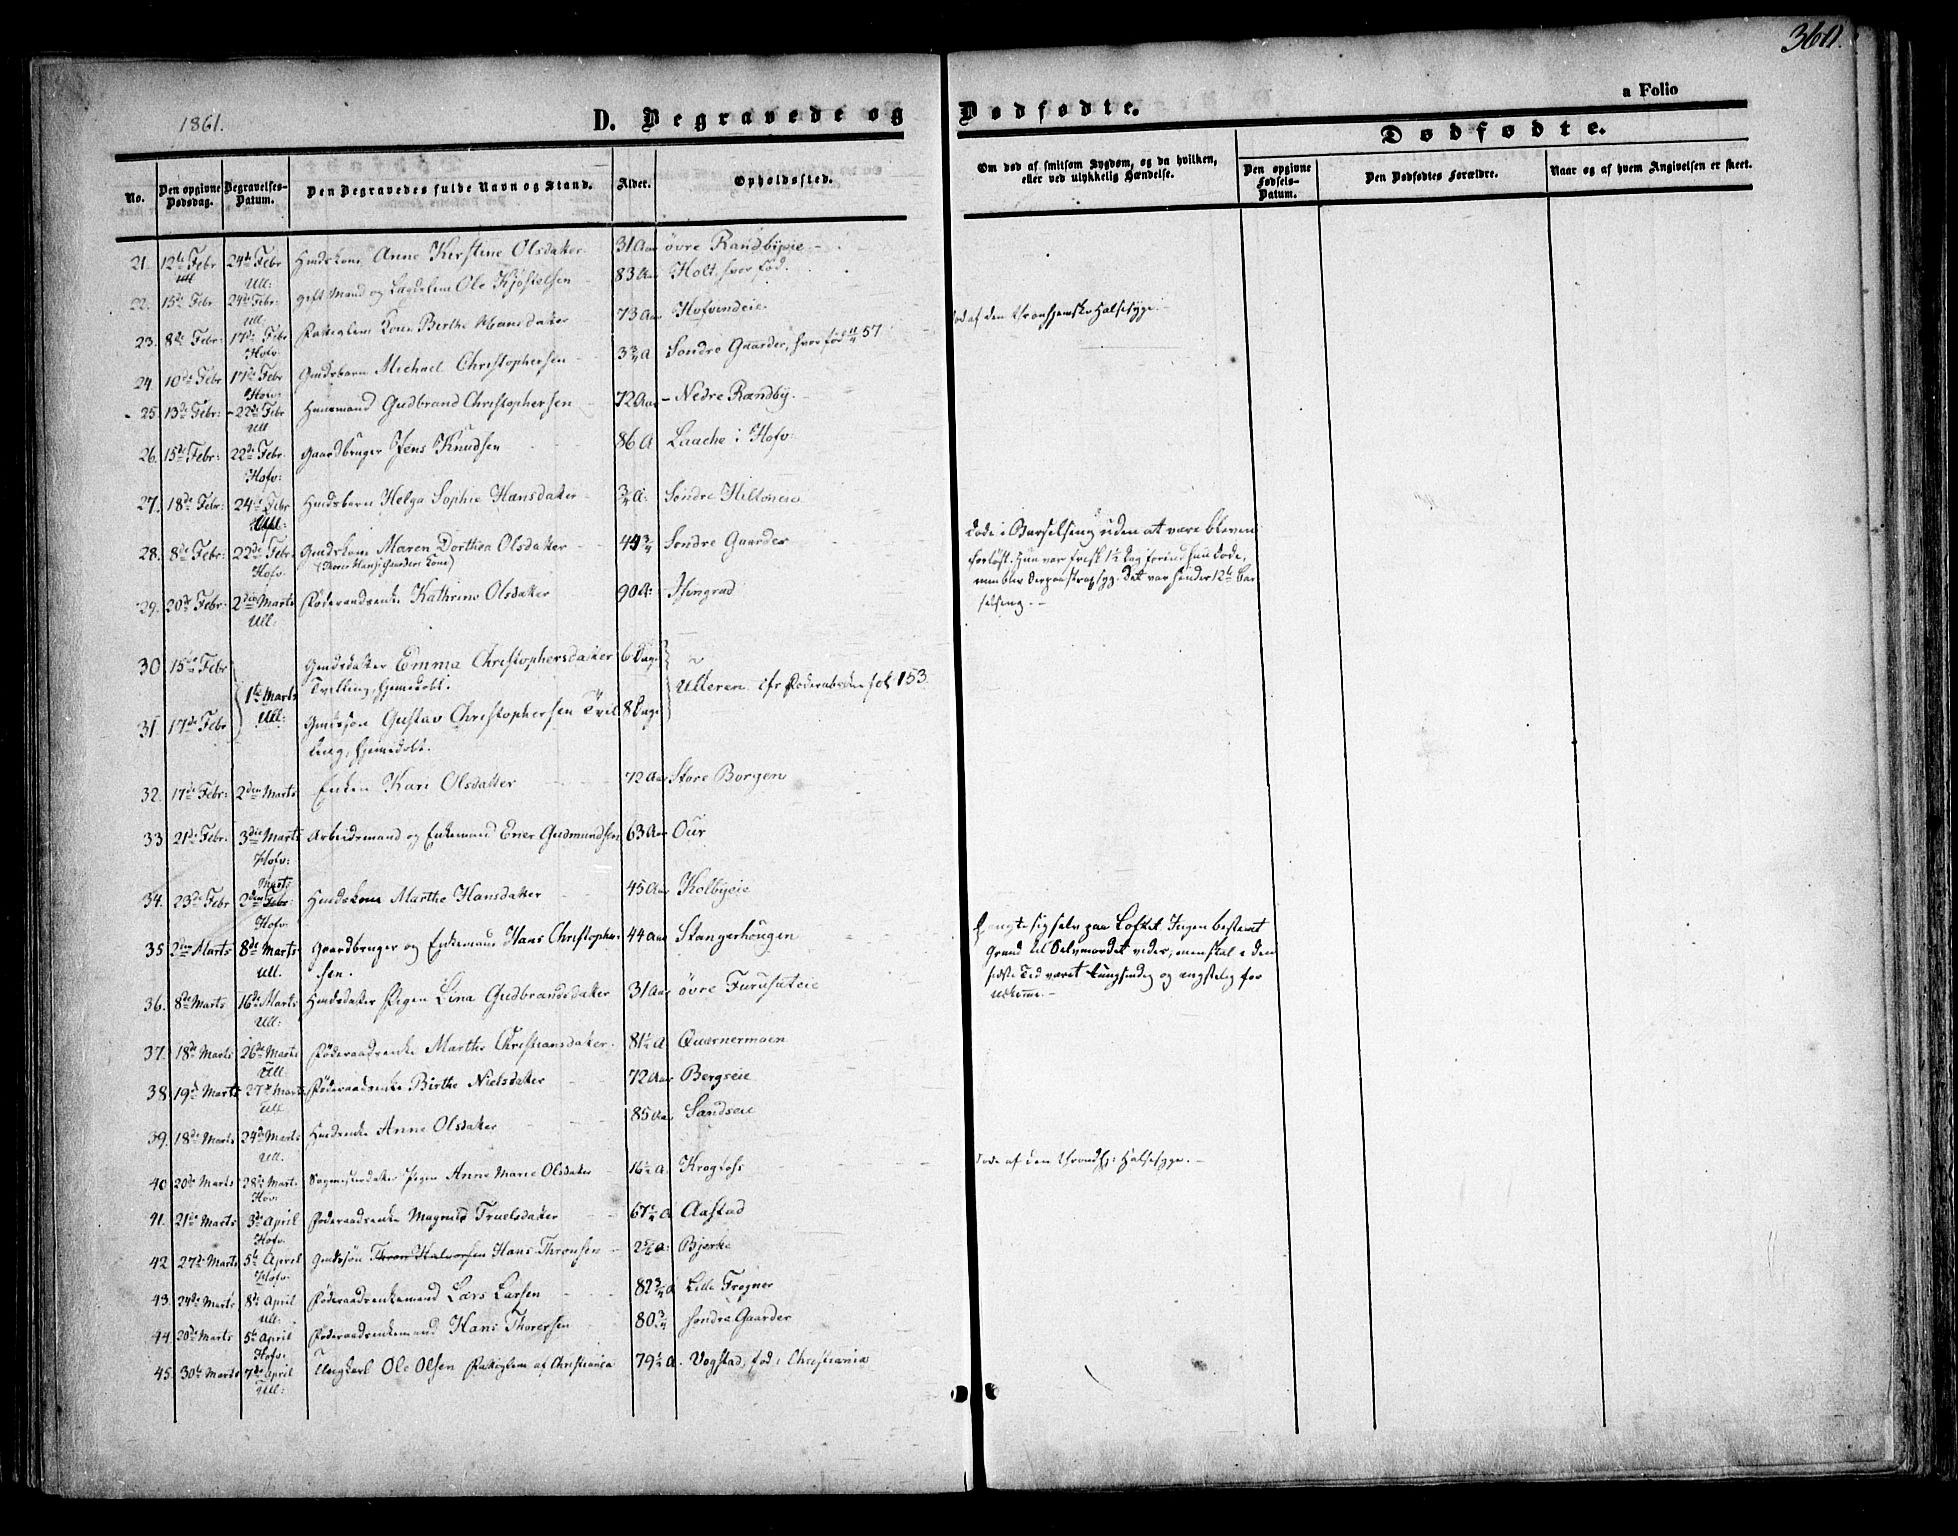 360.
a Folio
1861.
D. Begravede og Dødfødte.
Dødfødte.
No.
Den opgivne Dødsdag.
Begravelses-Datum.
Den Begravedes fulde Navn og Stand.
Alder.
Opholdssted.
Om død af smitsom Sygdom, og da hvilken, eller ved ulykkelig Hændelse.
Den opgivne Fødsels-Datum.
Den Dødfødtes Forældre.
Naar og af hvem Angivelsen er skeet.
21. 12te Febr 24de Febr Ull: Huuskone Anne Kirstine Olsdatter 31 Aar øvre Randbyeie
22. 15de Febr 24de Febr: Ull. gift Mand og Lægdslem Ole Kjøstelsen 83 Aar Holt, hvor fød.
23. 8de Febr: 17de Febr Hofv: Fattiglem Kone Berthe Hansdatter 73 Aar Hofvindeie
24. 10de Febr 17de Febr Hofv: Gaardbarn Michael Christophersen 3 3/4 A Søndre Gaarder, hvor fød 11/4 57 død af den Throndhjemske Halssyge.
25. 13de Febr: 22de Febr Ull Huusmand Gudbrand Christophersen 72 Aar Nedre Randby.
26. 15de Febr: 22de Febr. Hofv: Gaardbruger Jens Knudsen 86 A Laache i Hofv:
27. 18de Febr: 24de Febr Ull: Huusbarn Helga Sophie Hansdatter 3/4 A: Søndre Hiltonen
28. 8de Febr: 22de Febr. Hofv. Gaardkone Maren Dorthea Olsdatter 44 3/4 Søndre Gaarder
(Thorer Hansen Gaarders Kone)
døde i Barselseng uden at være bleven
forløst. Hun var frisk 1 1/2 Dag forind hun døde,
men blev derpaa strax syg. Det var hendes 12te Bar
selseng.
29. 20de Febr: 2den Marts Ull: Føderaadsenke Kathrine Olsdatter 90 A: Stengrad
30 15de Febr Gaardsdatter Emma Christophersdatter 6 Dage
Tvilling, hjemmedøbt.
1ste Marts Ull: Ulleren cfr Fødernteden fol 153.
31. 17de Febr Gaardssøn Gustav Christophersen Tvil 8 Dage
ling, hjemmedøbt.
32. 17de Febr: 2den Marts Enken Kari Olsdatter 72 Aar Store Borgen
33 21de Febr: 3die Marts Hofv: Arbeidsmand og Enkemand Ener Gudmundsen 63 Aar Our
34. 23de Febr 2den Febr: Marts Hofv: Huuskone Marthe Hansdatter 45 Aar Kolbyeie
35 2den Marts 8de Marts Ull. Gaardbruger og Enkemand Hans Christopher 44 Aar Stangerhougen
sen.
Hængte sig selv paa Loftet. Ingen bestemt
Grund til Selvmordet vides, men skal i den
sidste Tid været tungsindig og ængstelig for
Udkomme.
36. 8de Marts 16de Marts Ull: Huusdatter Pigen Lina Gudbrandsdatter 31 Aar øvre Furusateie
37. 18de Marts 26de Marts Ull. Føderaadsenke Marthe Christiansdatter 81 1/2 A Quærnermoen
38. 19de Marts 27de Marts Ull Føderaadsenke Birthe Nielsdatter 72 Aar Bergseie
39. 18de Marts 24de Marts Ull. Huusenke Anne Olsdatter 85 Aar Sandseie
40 20de Marts 28de Mart. Hov: datter Pigen Anne Marie Olsdatter 16 1/2 A. Krogfoss døde af den Trondhj: Halssyge.
41. 21de Marts 3de April Hofv. Føderaadsenke Magnild Truelsdatter 67 1/4 A Aastad
42 27de Marts 5te April Hofv. Gaardssøn Thron Halvorsen Hans Thronsen Bjerke
43. 24de Marts 8de April Ull: Føderaadsenkemand Lars Larsen 82 3/4 A Lille Frogner
44. 20de Marts 5te April Hofv: Føderaadsenkemand Hans Thorersen 80 3/4 Søndre Gaarder
45. 30te Marts 7de April Ull: Ungkarl Ole Olsen Fattiglem af Christiania 79 1/2 A. Vogstad, fød i Christiania